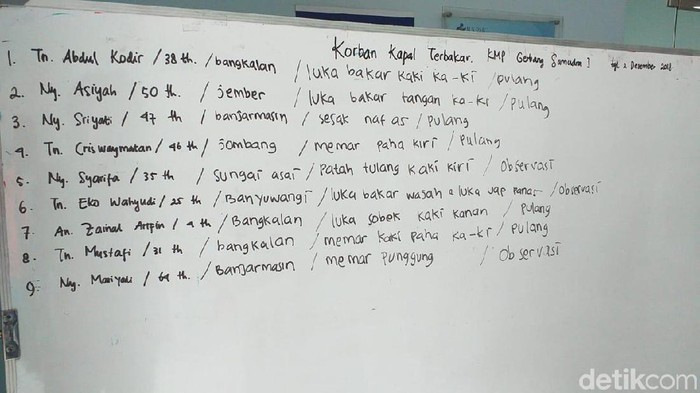 Korban Kapal Terbakar. KMP Gerbang Samudra 1 tgl 2 Desember 2018
1. Tn. Abdul Kodir / 38 th. / bangkalan / luka bakar kaki ka-ki / pulang
2. Ny. Asiyah / 50 th. / jember / luka bakar tangan ka-ki / pulang
3. Ny. Sriyati / 47 th / banjarmasin / sesak nafas / pulang
4. Tn. / 46 th / jombang / memar paha kiri / pulang
5. Ny. Syarifa / 35 th / sungai asai / patah tulang kaki kiri / Observasi
6. Tn. Eko Wahyudi / 25 th / Banyuwangi / luka bakar wasah & luka uap panas / Observasi
7. An. Zainal Arifin / 9 th / Bangkalan / luka sobek kaki kanan / pulang
8. Tn. Mustafi / 31 th / bangkalan / memar kaki paha ka-ki / pulang
9. Ny. / 64 th. / Banjarmasin / memar punggung / Observasi
detikcom